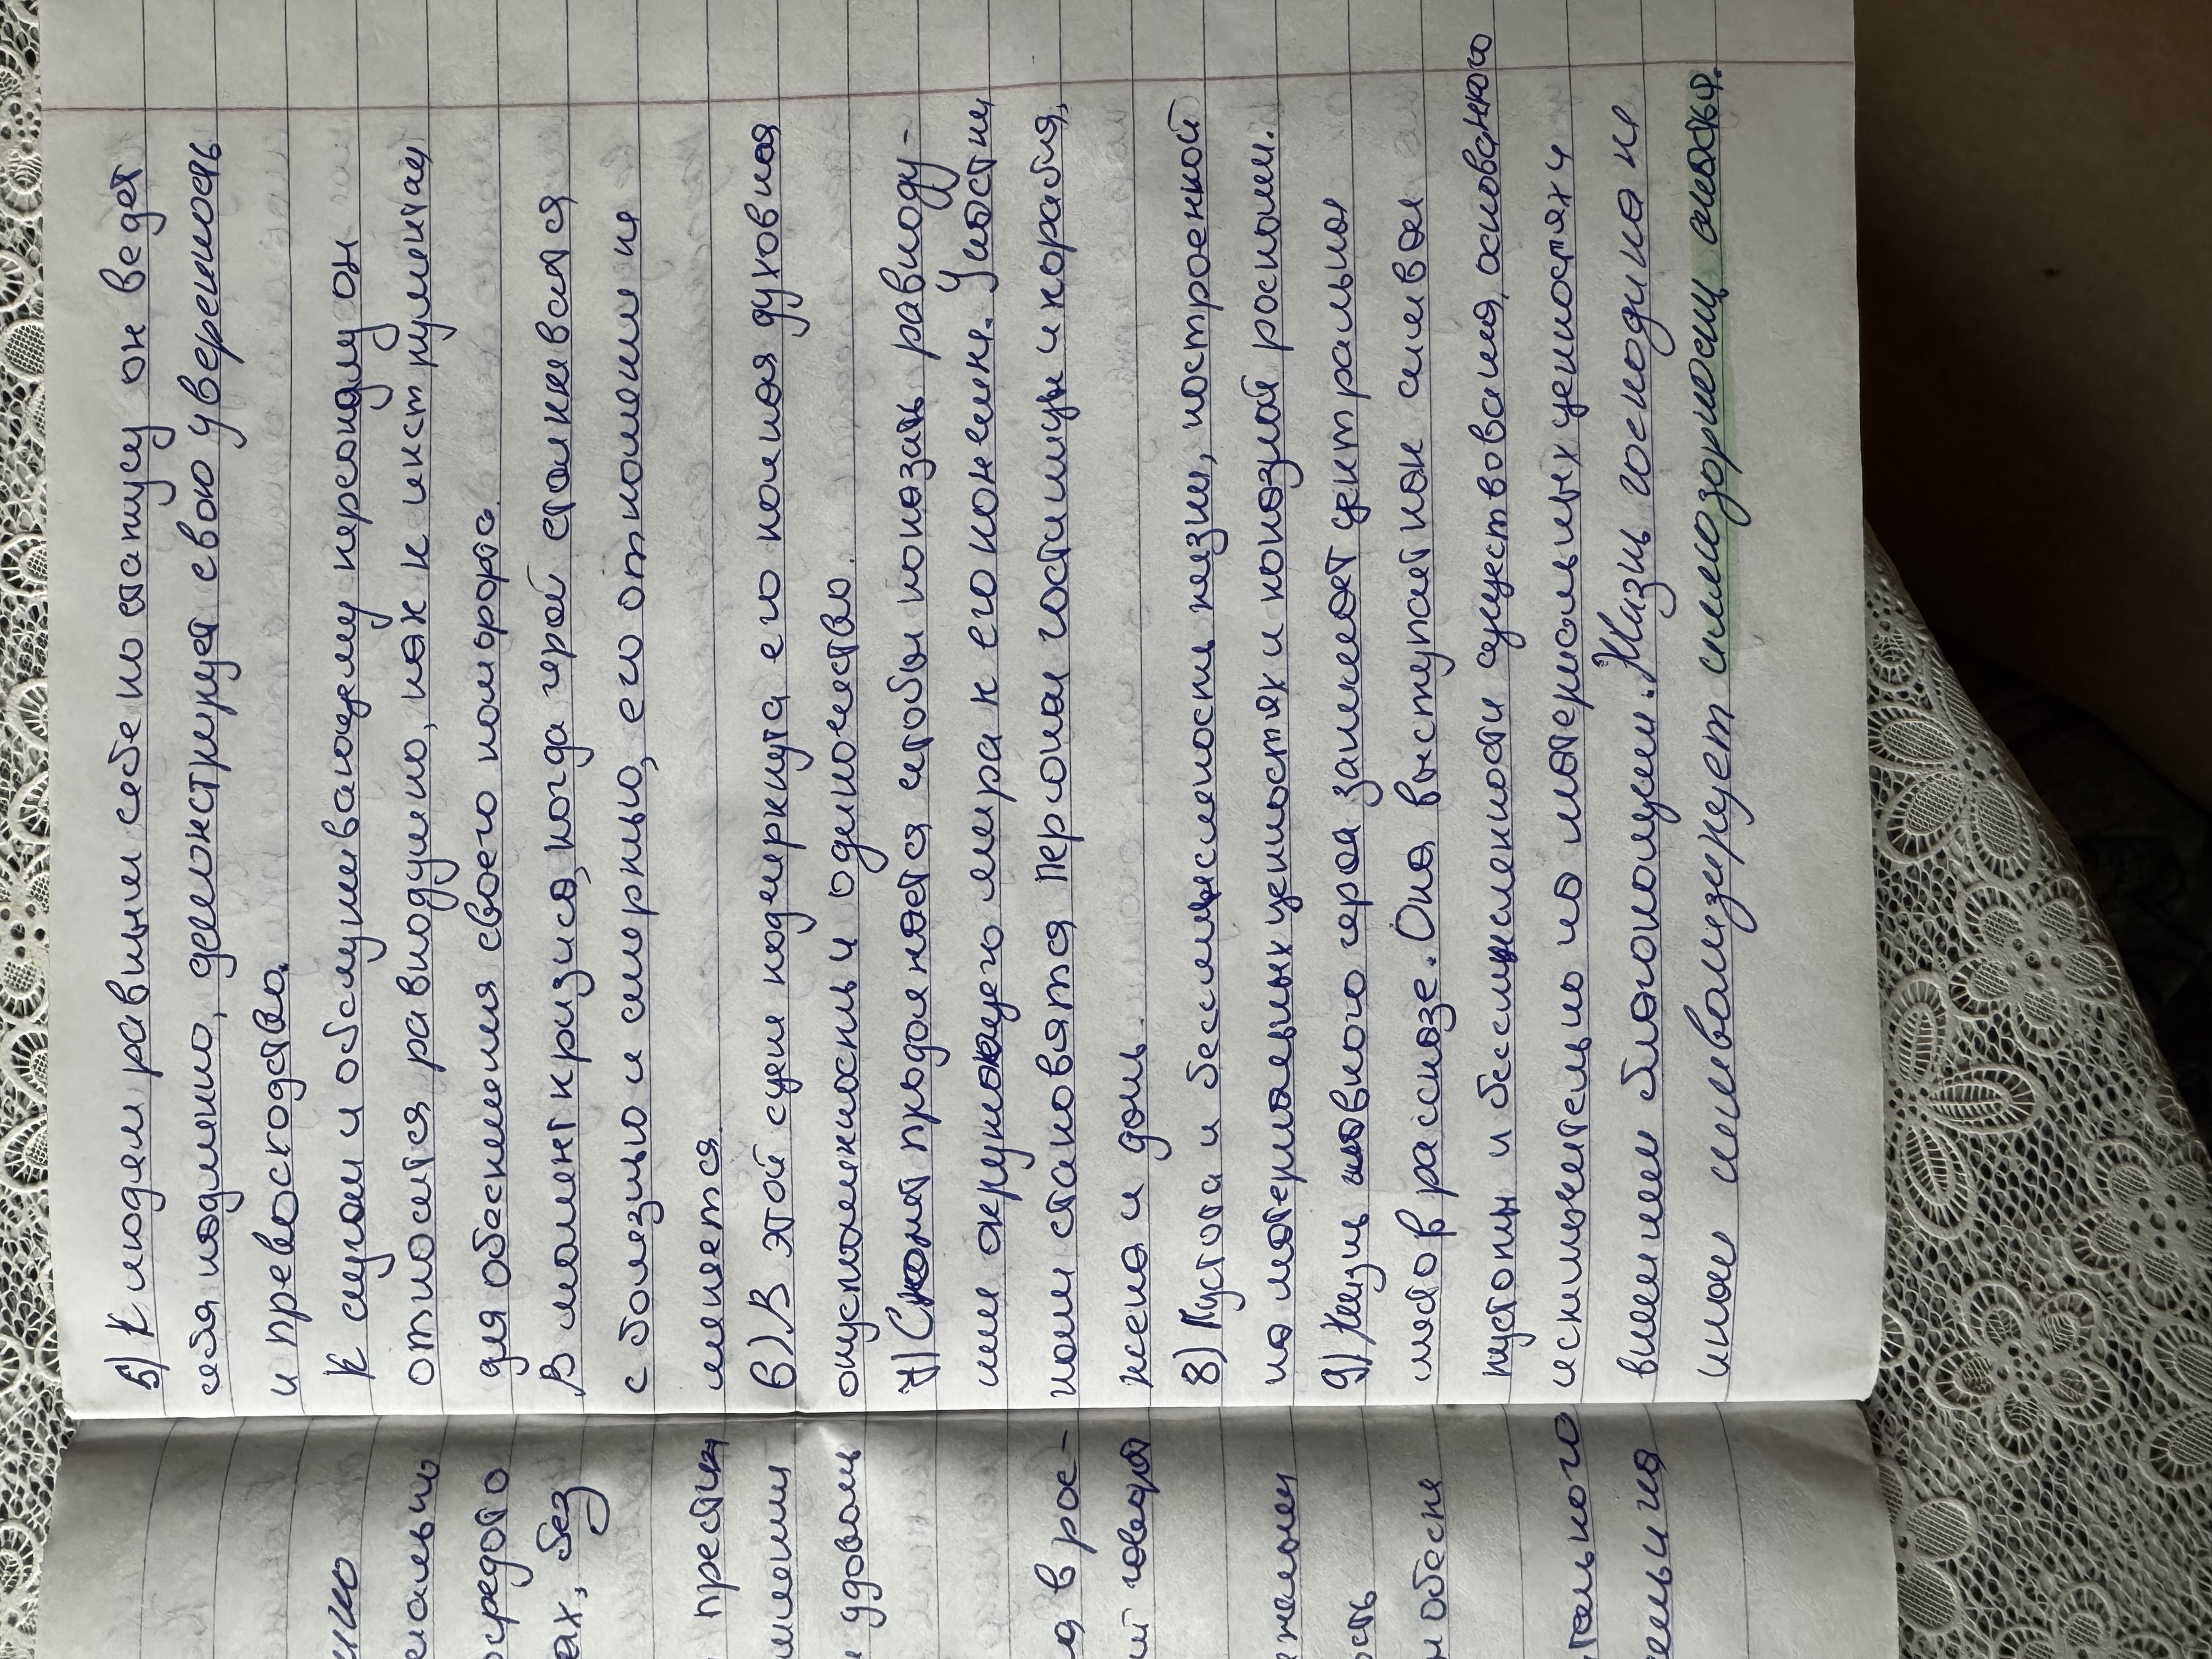 5) К людям равным себе по статусу он ведет
себя надменно, демонстрирует свою уверенность
и превосходство.
К слугам и обслуживающему персоналу он
относится равнодушно, как к инструментам
для обеспечения своего комфорта.
В момент кризиса, когда герой сталкивался
с болезнью и смертью, его отношение не
меняется.
6) В этой сцене подчеркнута его полная духовная
опустошенность и одиночество.
7) Сюжет продолжается чтобы показать равноду-
шие окружающего мира к его кончине. Участни
ками становятся персонал гостиницы и корабля,
жена и дочь.
8) Пустота и бессмысленность жизни, построенной
на материальных ценностях и показной роскоши.
9) Жизнь главного героя занимает центральное
место в рассказе. Она выступает как символ
пустоты и бессмысленности существования, основанного
исключительно на материальных ценностях и
внешнем благополучии. Жизнь господина не
иным символизирует иллюзорность счастья.
ально
осредото
ах, без
прести
удоволь
я в рос-
ость
обеспе
тального